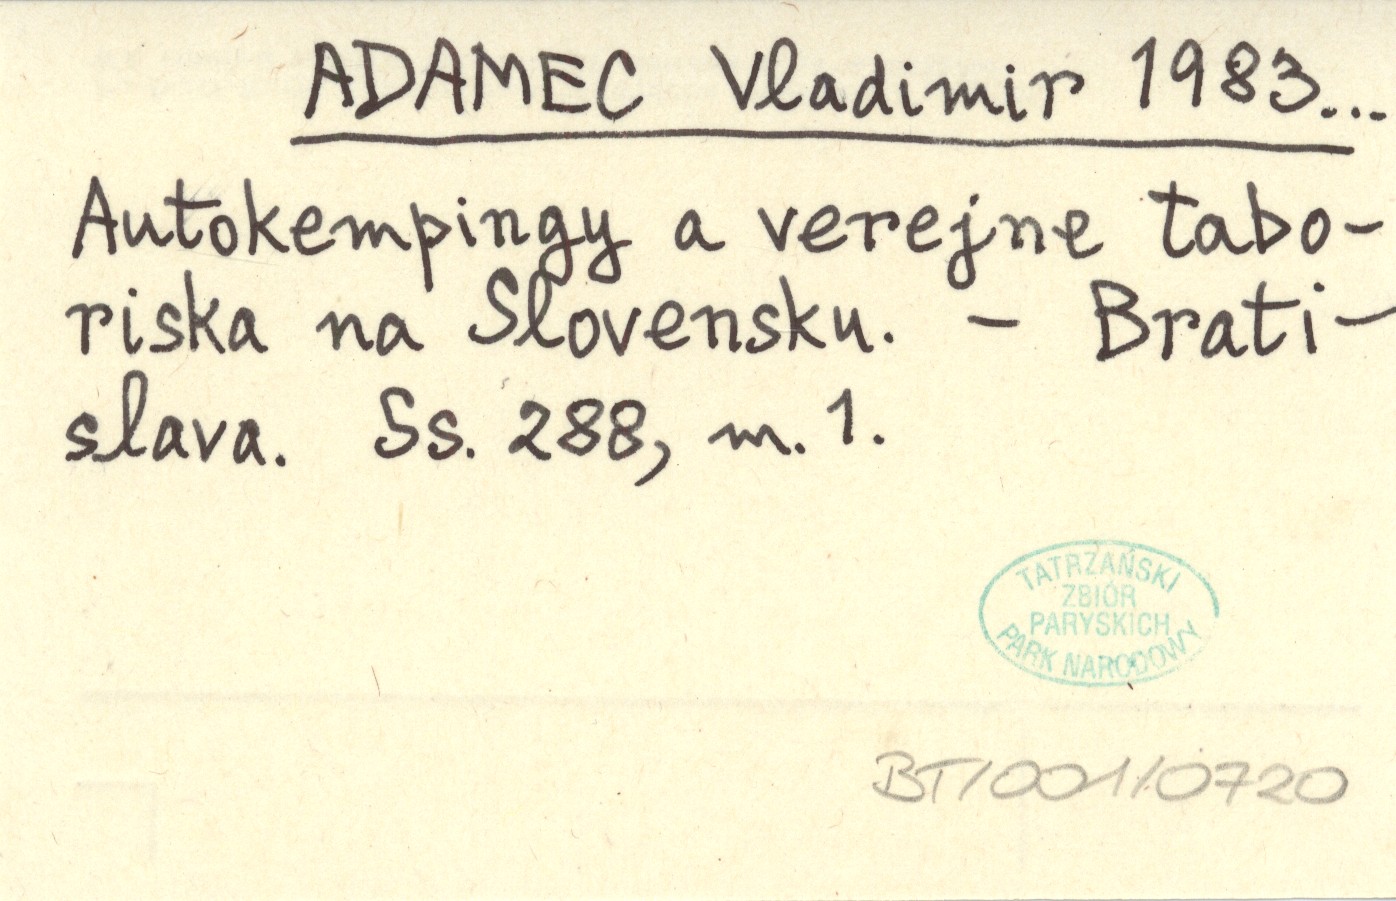 ADAMEC Vladimir 1983...
Autokempingy a verejne tabo-
riska na Slovensku. - Brati-
slava. Ss. 288, m. 1.
TATRZAŃSKI
ZBIÓR
PARYSKICH
PARK NARODOWY
BT/001/0720